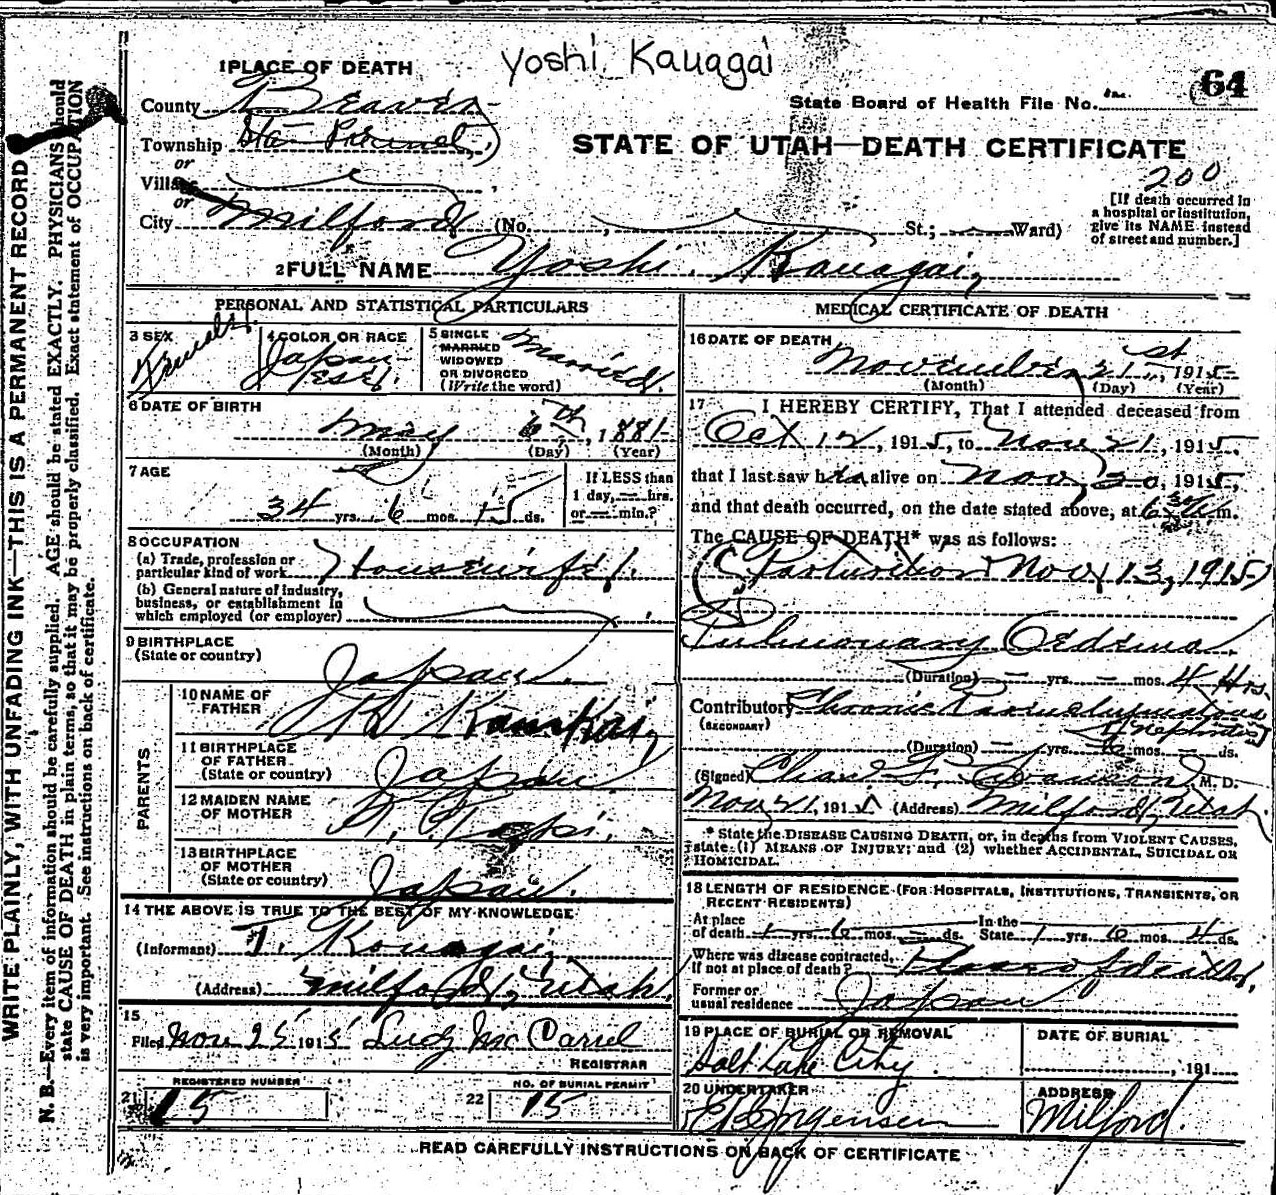 Yoshi Kauagai
1 PLACE OF DEATH
64
County Beaver
State Board of Health File No.
Township
STATE OF UTAH—DEATH CERTIFICATE
or
Village
200
or
City Milford (No. St.; Ward)
[If death occurred in
a hospital or institution,
give its NAME instead
of street and number.]
2 FULL NAME Yoshi Kauagai
PERSONAL AND STATISTICAL PARTICULARS
3 SEX Female
4 COLOR OR RACE Japanese
5 SINGLE
MARRIED
WIDOWED
OR DIVORCED
(Write the word) Married
6 DATE OF BIRTH
May 6th, 1881
(Month) (Day) (Year)
7 AGE
34 yrs. 6 mos. 15 ds.
If LESS than
1 day, — hrs.
or — min.?
8 OCCUPATION
(a) Trade, profession or
particular kind of work Housewife
(b) General nature of industry,
business, or establishment in
which employed (or employer)
9 BIRTHPLACE
(State or country) Japan
PARENTS
10 NAME OF
FATHER
11 BIRTHPLACE
OF FATHER
(State or country) Japan
12 MAIDEN NAME
OF MOTHER
13 BIRTHPLACE
OF MOTHER
(State or country) Japan
14 THE ABOVE IS TRUE TO THE BEST OF MY KNOWLEDGE
(Informant) T. Kouagai
(Address) Milford, Utah
15
Filed Nov 25 1915 Lucy McCariel
REGISTRAR
21 REGISTERED NUMBER 15
22 NO. OF BURIAL PERMIT 15
MEDICAL CERTIFICATE OF DEATH
16 DATE OF DEATH
November 21st, 1915
(Month) (Day) (Year)
17 I HEREBY CERTIFY, That I attended deceased from
Oct 12, 1915, to Nov 21, 1915,
that I last saw her alive on Nov 20, 1915,
and that death occurred, on the date stated above, at 6 30 m.
The CAUSE OF DEATH* was as follows:
Parturition Nov 13, 1915
Pulmonary Oedema
(Duration) — yrs. — mos. 4 Hrs.
Contributory Chronic Parenchymatous
(SECONDARY) Nephritis
(Duration) — yrs. 6 mos. — ds.
(Signed) M. D.
Nov 21, 1915 (Address) Milford, Utah
* State the DISEASE CAUSING DEATH, or, in deaths from VIOLENT CAUSES,
state (1) MEANS OF INJURY; and (2) whether ACCIDENTAL, SUICIDAL OR
HOMICIDAL.
18 LENGTH OF RESIDENCE (FOR HOSPITALS, INSTITUTIONS, TRANSIENTS, OR
RECENT RESIDENTS)
At place
of death 1 yrs. 6 mos. — ds. In the State 1 yrs. 6 mos. 4 ds.
Where was disease contracted,
if not at place of death? Place of death
Former or
usual residence Japan
19 PLACE OF BURIAL OR REMOVAL
Salt Lake City
DATE OF BURIAL
, 191
20 UNDERTAKER
Jorgensen
ADDRESS
Milford.
READ CAREFULLY INSTRUCTIONS ON BACK OF CERTIFICATE
WRITE PLAINLY, WITH UNFADING INK—THIS IS A PERMANENT RECORD
N. B.—Every item of information should be carefully supplied. AGE should be stated EXACTLY. PHYSICIANS should
state CAUSE OF DEATH in plain terms, so that it may be properly classified. Exact statement of OCCUPATION
is very important. See instructions on back of certificate.